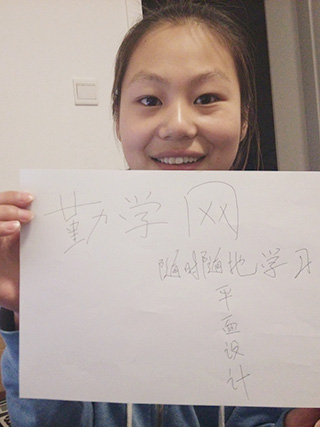 勤学网
随时随地学习
平面设计